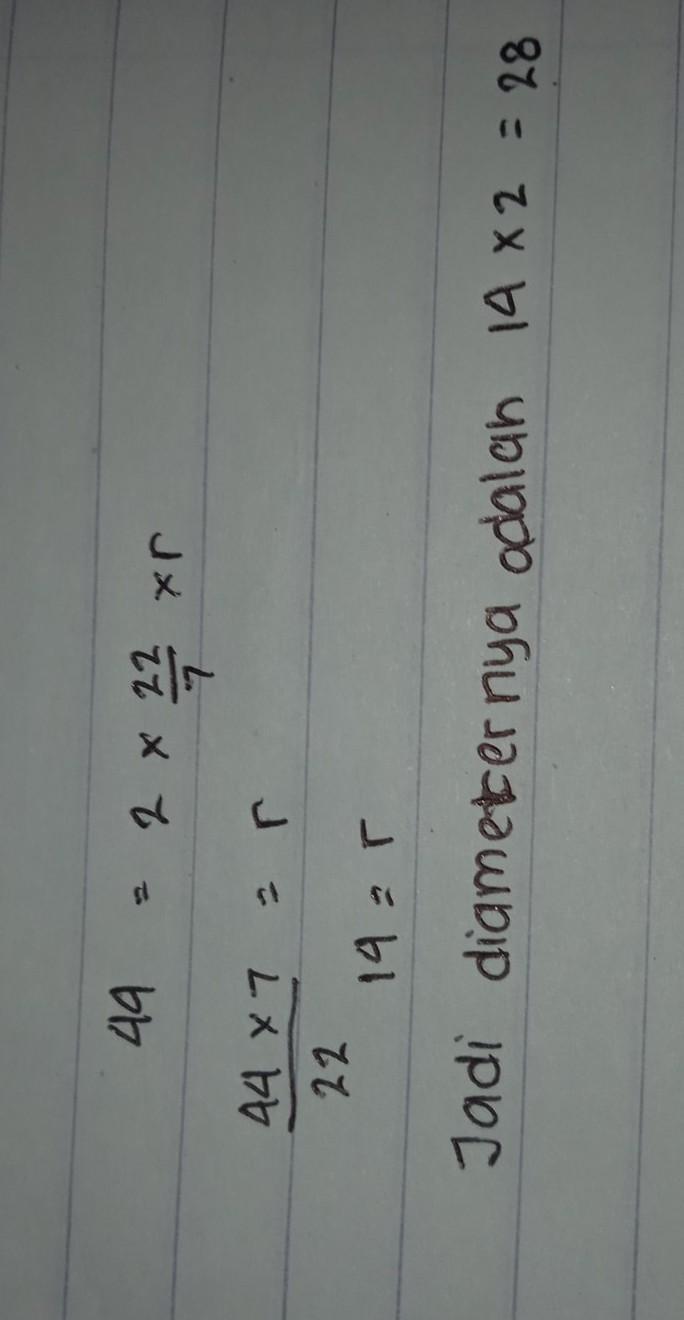 44 = 2 × 22/7 × r
44 × 7 / 22 = r
14 = r
Jadi diameternya adalah 14 × 2 = 28